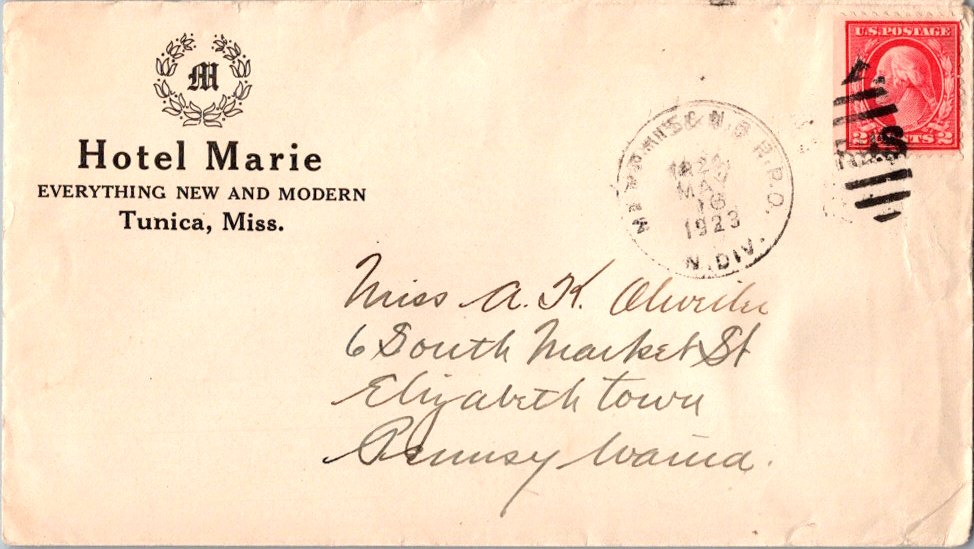 M
Hotel Marie
EVERYTHING NEW AND MODERN
Tunica, Miss.
U.S. POSTAGE
2 CENTS 2
N.O. R.P.O.
MAY
16
1923
N. DIV.
RMS
Miss A. K.
6 South Market St
Elizabethtown
Pennsylvania.